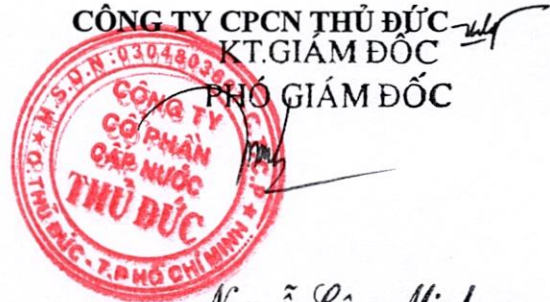 CÔNG TY CPCN THỦ ĐỨC
KT.GIÁM ĐỐC
PHÓ GIÁM ĐỐC
M.S.D.N:030480360
C.T.C.P
CÔNG TY
CỔ PHẦN
CẤP NƯỚC
THỦ ĐỨC
Q.THỦ ĐỨC - T.P HỒ CHÍ MINH